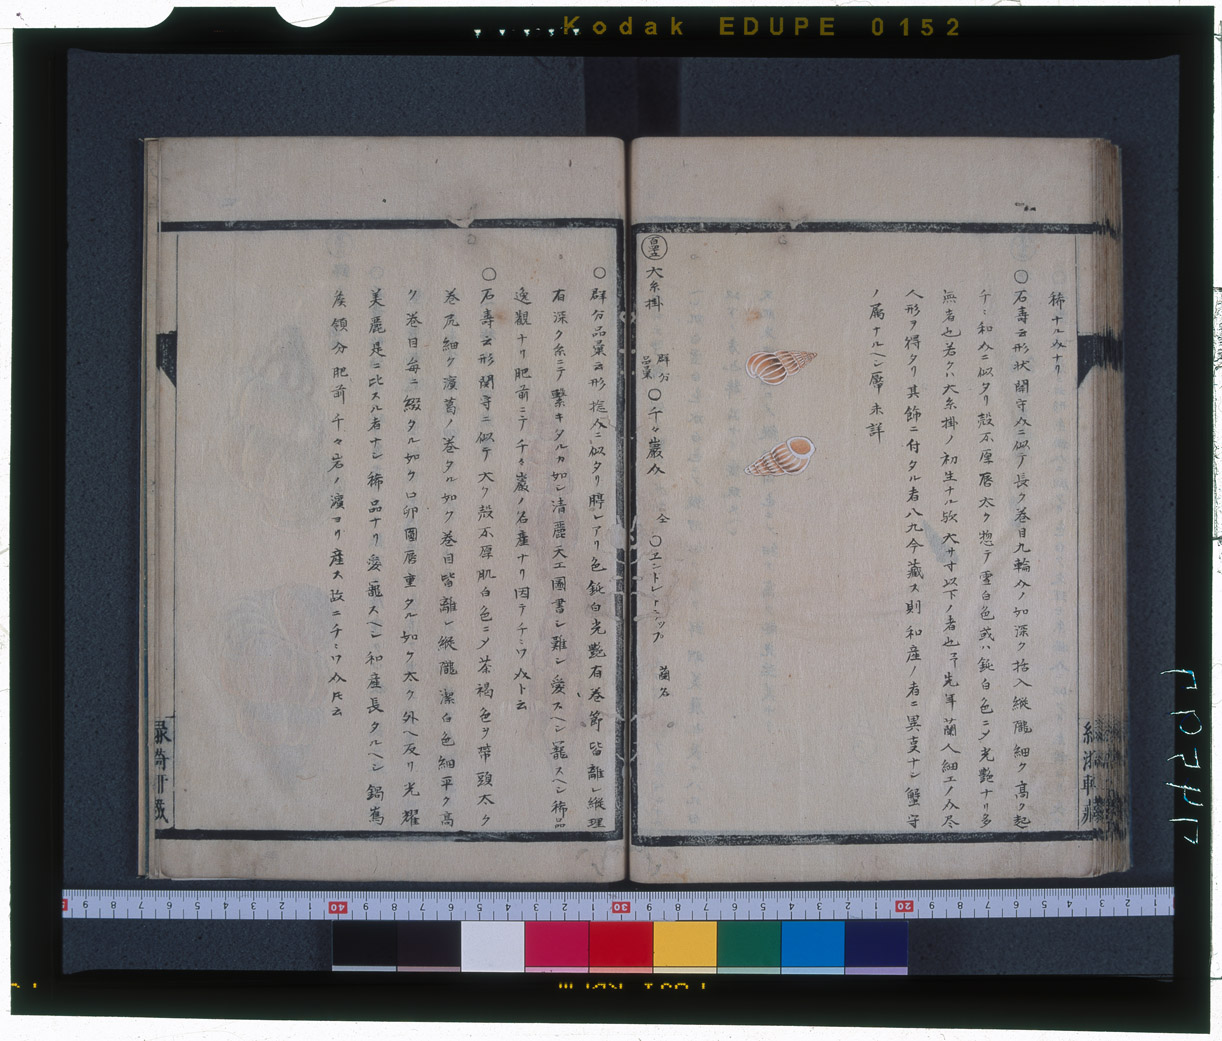 Kodak EDUPE 0152
稀ナル介ナリ
〇石壽云形状関守介ニ似テ長ク巻目九輪介ノ如深ク括入縦隴細ク高ク起
チ〻和介ニ似タリ殻不厚唇太ク惣テ雪白色或ハ鈍白色ニメ光艶ナリ多
無者也若クハ大糸掛ノ初生ナル歟大サ寸以下ノ者也 先年蘭人細工ノ介尽
人形ヲ得タリ其飾ニ付タル者八九今蔵ス則和産ノ者ニ異事ナシ蟹守
ノ属ナルヘシ 未詳
大糸掛 群分品彙 〇千々巌介 仝 〇ヱントレトップ 蘭名
〇群分品彙云形 介ニ似タリ 脖レアリ色鈍白光艶有巻節皆離レ縦理
有深ク糸ニテ繋キタルカ如シ清麗天工圖書シ難シ愛スヘシ寵スヘシ稀品
逸観ナリ肥前ニテ千々巌ノ名産ナリ因テチ〻ワ介ト云
〇石壽云形関守ニ似テ大ク殻不厚肌白色ニメ茶褐色ヲ帯頭太ク
巻尻細ク濱葛ノ巻タル如ク巻目皆離レ縦隴潔白色細平ク高
ク巻目毎ニ綴タル如ク口卵圓唇重タル如ク太ク外ヘ反リ光耀
美麗是ニ比スル者ナシ稀品ナリ愛寵スヘシ和産長タルヘシ鍋嶌
侯領分肥前千々岩ノ濱ヨリ産ス故ニチ〻ワ介氏云
40
30
20